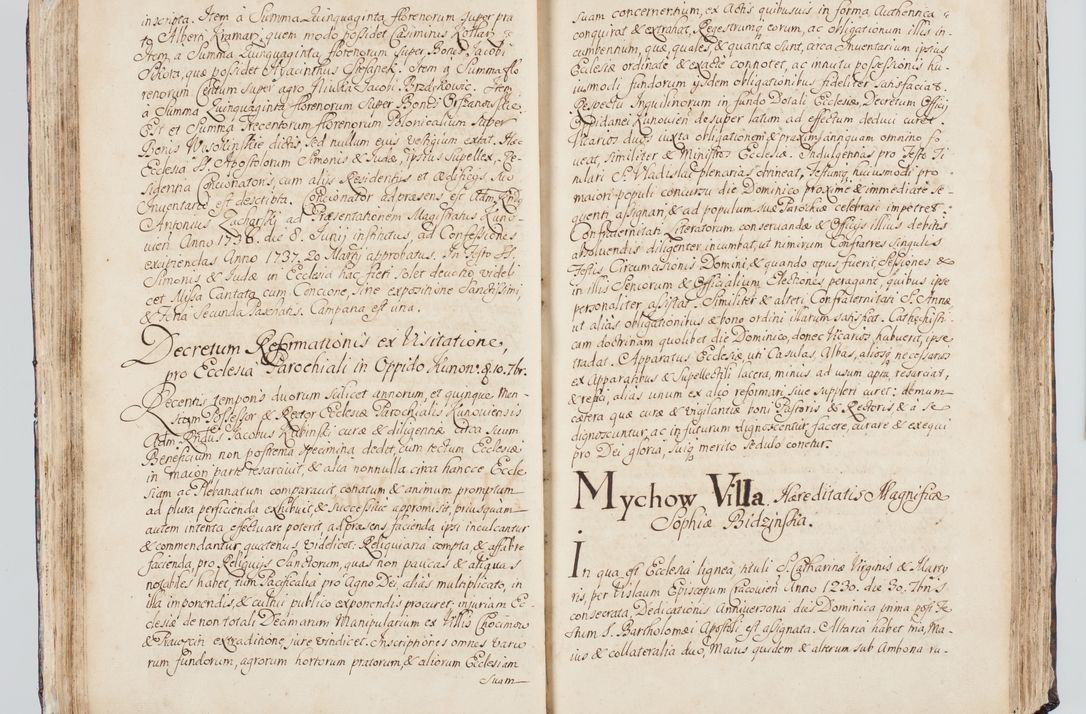 inscripta. Item à Summa Quinquaginta florenorum super pra
to Alberti Kramar, quem modo possidet Casimirus Kotlarz
Item, à Summa Quinquaginta florenorum Super Bonis Jacobi
quæ possidet Hyacinthus Stefanek. Item à Summa flo
renorum Centum super agro Jacobi Item
à Summa Quinquaginta florenorum Super Bonis
Est et Summa Trecentorum florenorum Polonicalium super
Bonis dictis, sed nullum eius vestigium extat. Hæc
Ecclesia SS. Apostolorum Simonis & Judæ, ipsius Supellex, Re-
sidentia Concionatoris, cum alijs Residentijs et ædificijs, suo
Inventario est descripta. Concionator adpræsens est Adm. Rndus
Antonius Zucharski ad Præsentationem Magistratus Kuno-
vien Anno 1736. die 8. Junij institutus, ad Confessiones
excipiendas Anno 1737. 20 Martij approbatus. In Festo SS.
Simonis & Judæ in Ecclesia hac fieri solet devotio, videli
cet Missa Cantata cum Concione, sine expositione Sanctissimi,
& Feria Secunda Paschatis. Campana est una.
Decretum Reformationis ex Visitatione,
pro Ecclesia Parochiali in Oppido Kunow. 10. 7br.
Decentis temporis duorum scilicet annorum, et quinque Men-
sium Possessor & Rector Ecclesiæ Parochialis Kunoviensis
Adm. Rndus Jacobus Kubinski curæ & diligentiæ circa suum
Beneficium non postrema specimina dedit, cum tectum Ecclesiæ
in maiori parte resarciuit, & alia nonnulla circa hancce Eccle
siam ac Plebanatum comparauit, conatum & animum promptum
ad plura perficienda exhibuit, & successiue appromisit, priusquam
autem intenta efectuare poterit, ad præsens facienda ipsi inculcantur
& commendantur, quatenus videlicet: Reliquiaria compta, & affabre
facienda, pro Reliquijs Sanctorum, quas non paucas & aliquas
notabiles habet, tum Pacificalia pro Agno Dei, aliàs multiplicato, in
illa imponendis, & cultui publico exponendis procuret: injuriam Ec-
clesiæ de non totali Decimarum Manipularium ex Villis Chocimow
& extraditione, jure vindicet. Inscriptiones omnes vario-
rum fundorum, agrorum hortorum pratorum, & aliorum Ecclesiam
Suam
suam concernentium, ex Actis quibusuis in forma Authentica
conquirat & extrahat, Regestrumq eorum, ac obligationum illis in-
cumbentium, quæ, quales, & quantæ sunt, circa Inventarium ipsius
Ecclesiæ ordinatè & exactè connotet, ac intuitu possessionis hu-
iusmodi fundorum ijsdem obligationibus fideliter satisfaciat.
Respectu Inquilinorum in fundo Dotali Ecclesiæ, Decretum Officij
Oppidanei Kunovien desuper latum ad effectum deduci curet.
Vicarios duos iuxta obligationem & praxim antiquam omnino fo
veat, similiter & Ministros Ecclesiæ. Indulgentias pro Festo Ti-
tulari S. Vladislai plenarias obtineat, Festumq huiusmodi pro
maiori populi concursu die Dominico proximè & immediatè se-
quenti assignari, & ad populum suæ Parochiæ celebrari impetret.
Confraternitati Literatorum conservandæ & Officijs illius debitis
absoluendis diligenter incumbat, ut nimirum Confratres singulis
Festis, Circumcisionis Domini, & quando opus fuerit, Sessiones &
in illis Seniorum & Officialium Electiones peragant, quibus ipse
personaliter assistat. Similiter & alteri Confraternitati S. Annæ
ut aliàs obligationibus & bono ordini illarum satisfiat. Catechisti-
cam doctrinam quolibet die Dominico, donec Vicarios habuerit, ipse
tradat. Apparatus Ecclesiæ, uti Casulas, Albas, aliosq necessarios
ex Apparatibus & Supellectili lacera, minus ad usum apta, resarciat,
& reficiat, alias unum ex alio reformari, siue suppleri curet: demum
cætera quæ curæ & vigilantiæ boni Pastoris & Rectoris & à se
dignoscuntur, ac in futurum dignoscentur, facere, curare & exequi
pro Dei gloria, suiq merito sedulo conetur.
Mychow Villa Hæreditatis Magnificæ
Sophiæ Bidzinska.
In qua est Ecclesia lignea, tituli S. Catharinæ Virginis & Marty
ris, per Vislaum Episcopum Cracovien Anno 1230. die 30. 7bris
consecrata, Dedicationis Anniuersaria dies Dominica prima post Fe
stum S. Bartholomæi Apostoli, est assignata. Altaria habet tria, Ma-
ius & collateralia duo, Maius quidem & alterum sub Ambona ru-